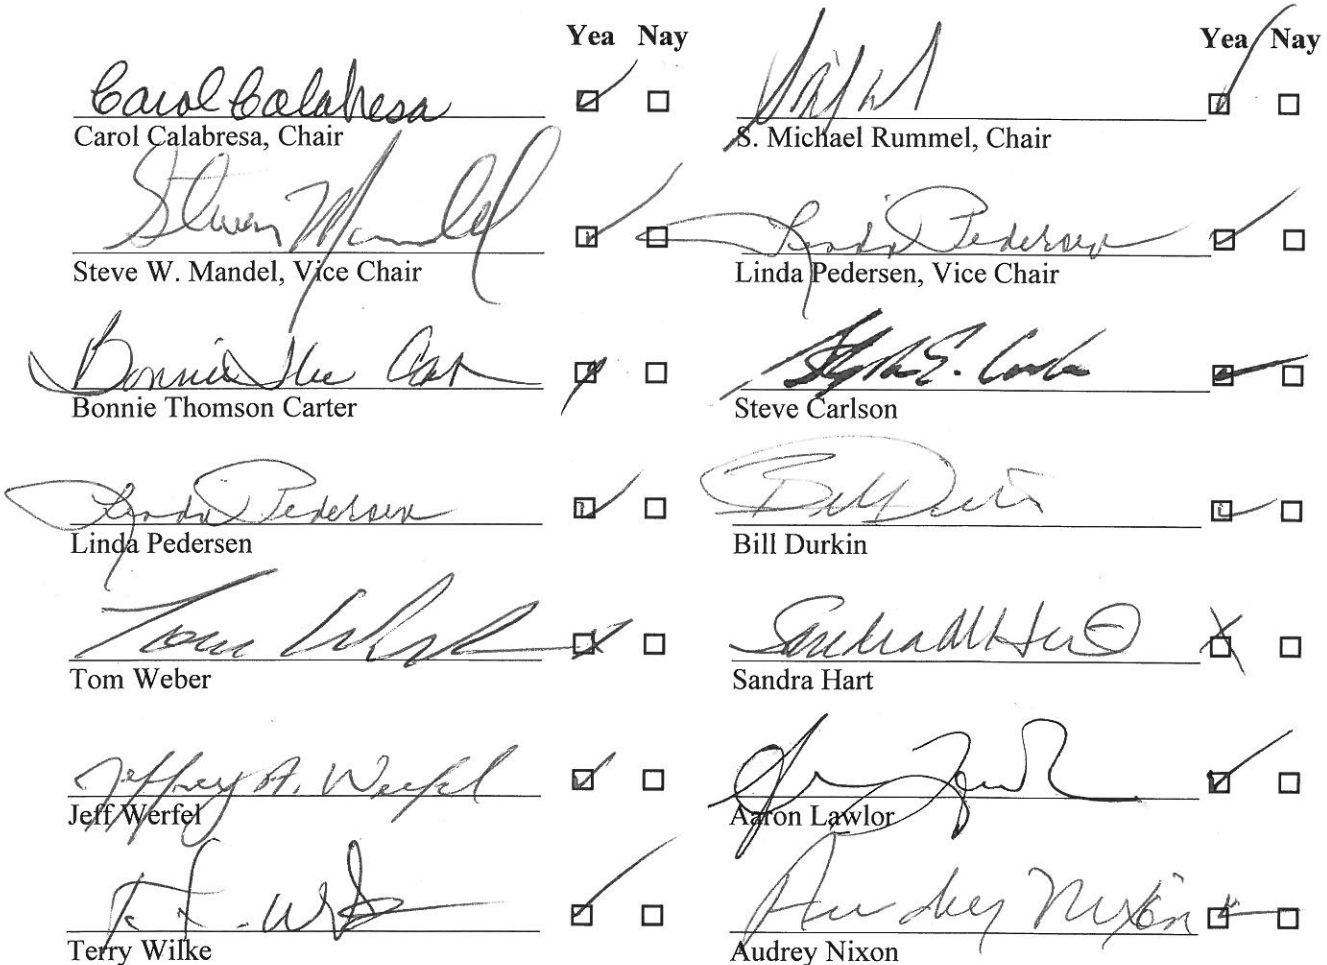 Yea Nay
Carol Calabresa
Carol Calabresa, Chair
Steven Mandel
Steve W. Mandel, Vice Chair
Bonnie Thomson Carter
Linda Pedersen
Linda Pedersen
Tom Weber
Tom Weber
Jeffrey A. Werfel
Jeff Werfel
Terry Wilke
Yea Nay
S. Michael Rummel, Chair
Linda Pedersen
Linda Pedersen, Vice Chair
Stephen E. Carlson
Steve Carlson
Bill Durkin
Sandra M Hart
Sandra Hart
Aaron Lawlor
Audrey Nixon
Audrey Nixon